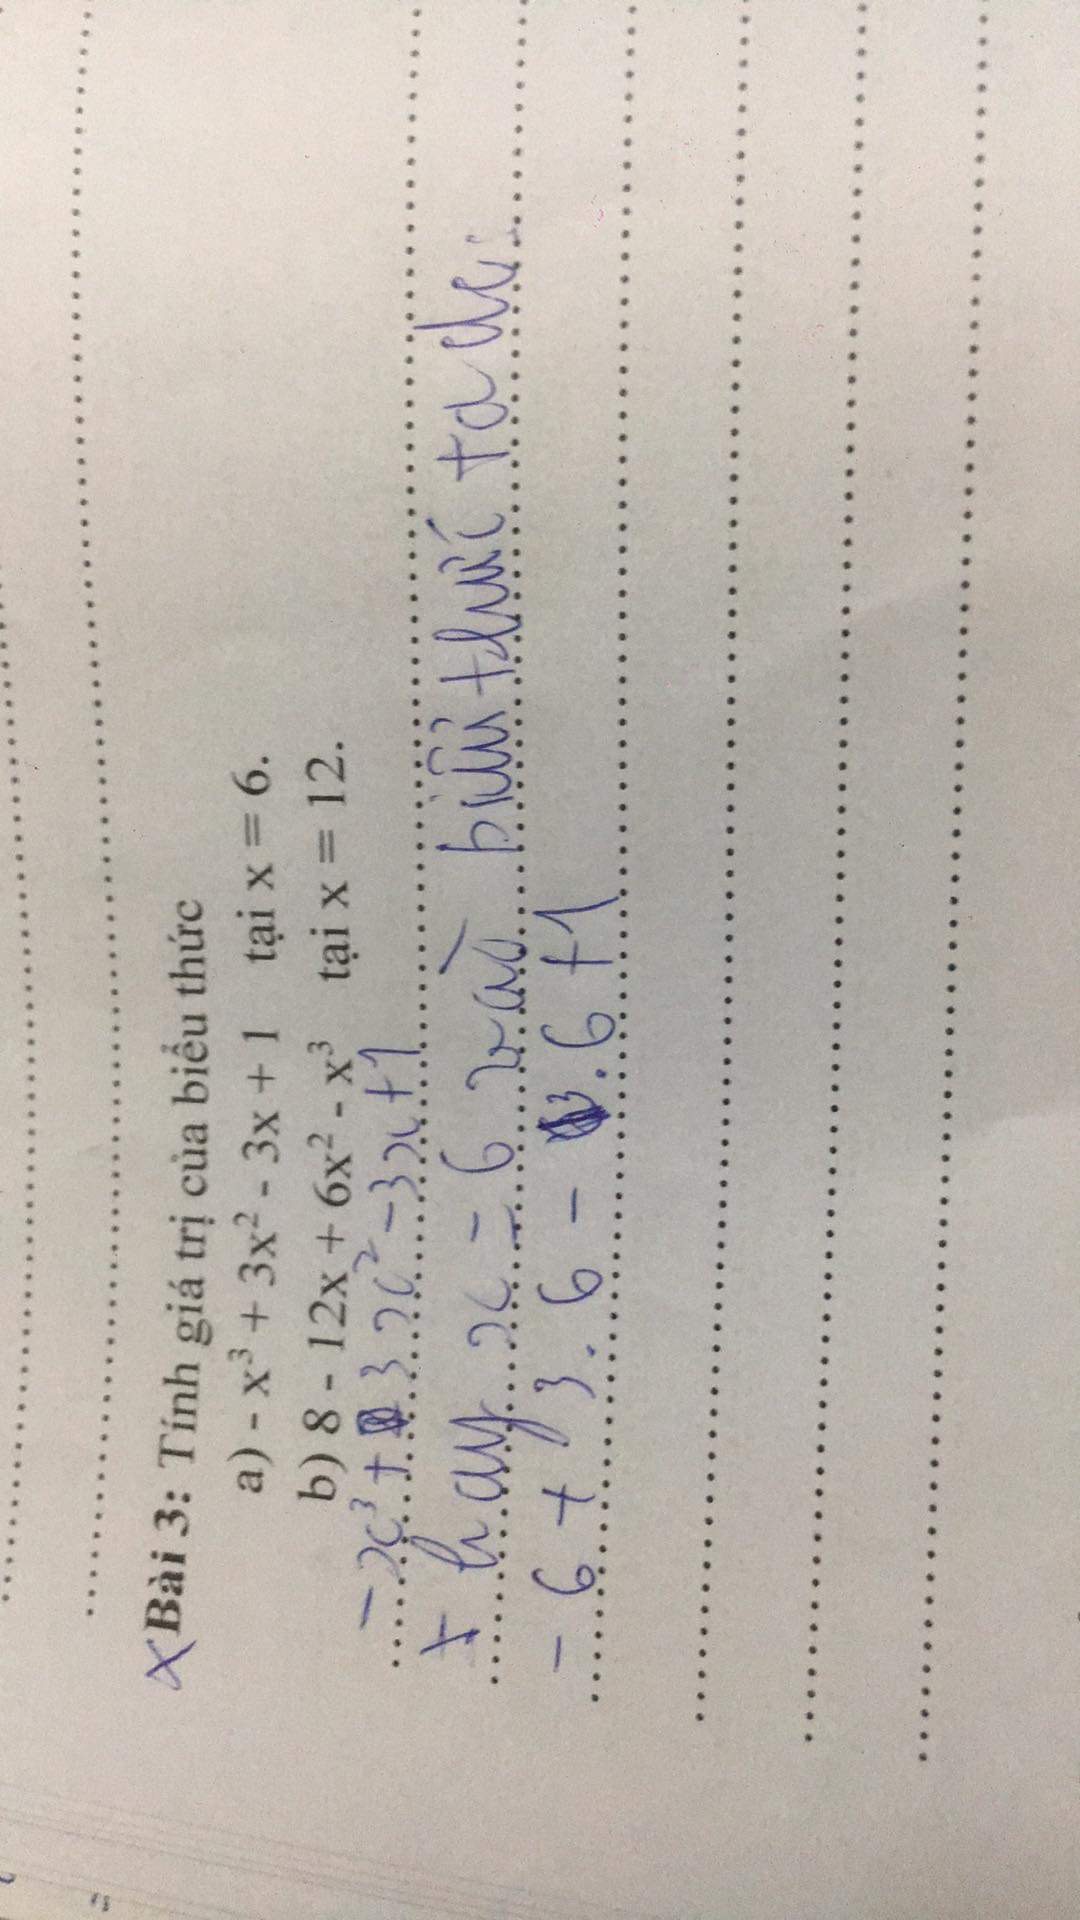 Bài 3: Tính giá trị của biểu thức
a) - x³ + 3x² - 3x + 1 tại x = 6.
b) 8 - 12x + 6x² - x³ tại x = 12.
- x³ + 3x² - 3x + 1
thay x = 6 vào biểu thức ta
- 6 + 3 . 6 - 3 . 6 + 1